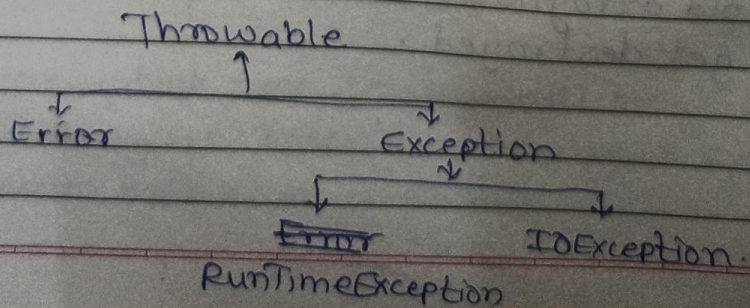 Throwable
Error
Exception
Error
IOException.
RunTimeException